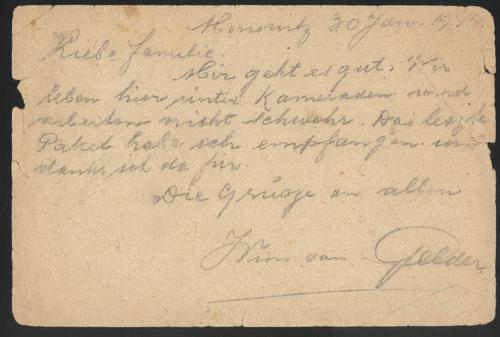 Monowitz 30 Jan.
Liebe familie.
Mir geht es gut. Wir
leben hier unter Kameraden und
arbeiten nicht schwehr. Das letzte
Paket habe ich empfangen und
danke ich da für.
Die Grüsze an allen
Wim van Gelder